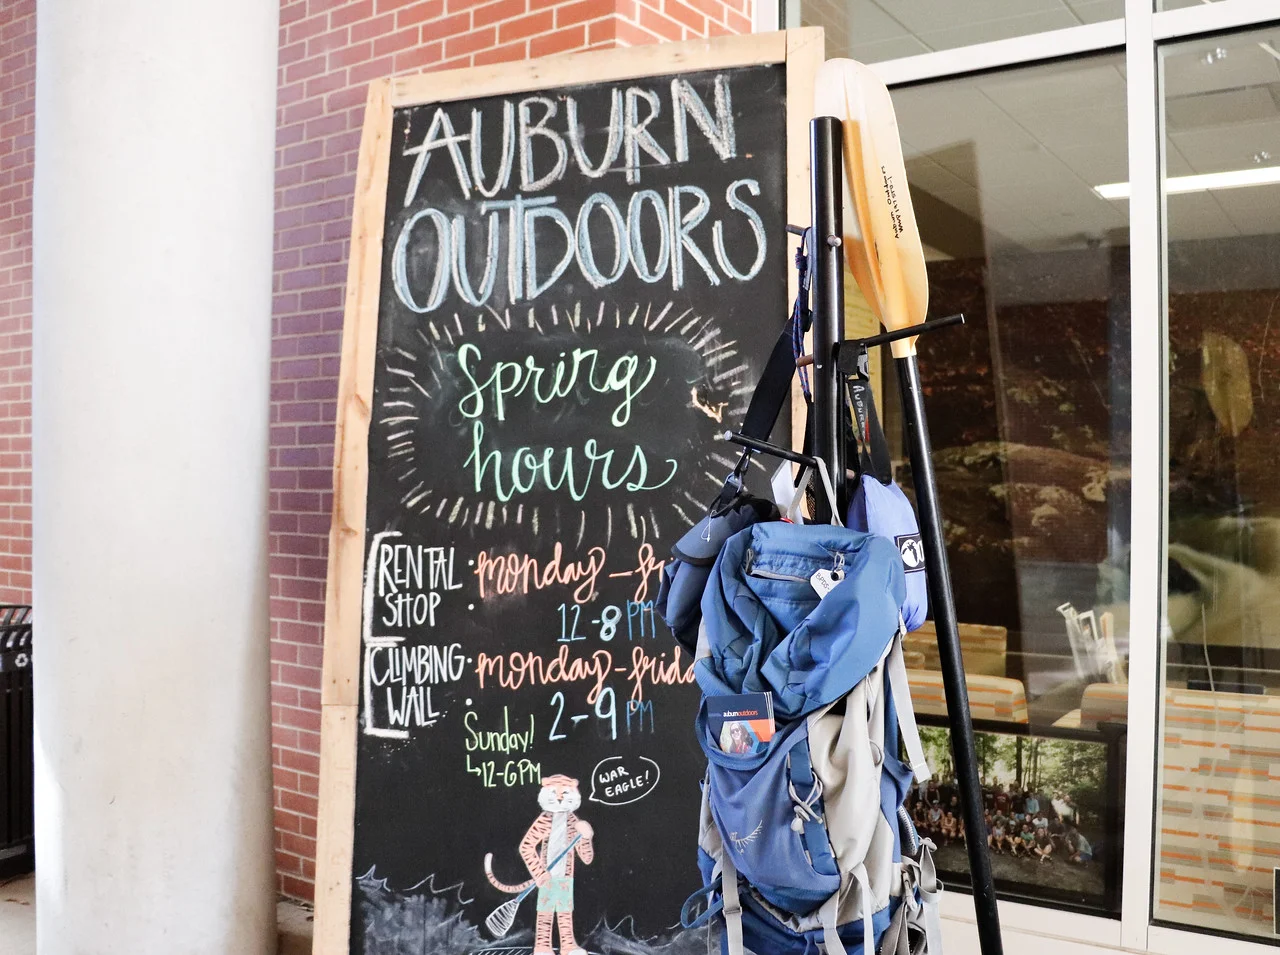 AUBURN
OUTDOORS
Spring
hours
RENTAL
SHOP
• monday - fr
• 12-8 PM
CLIMBING
WALL
• monday - frida
• 2-9 PM
Sunday!
↳12-6PM
WAR
EAGLE!
auburnoutdoors
AUBURN